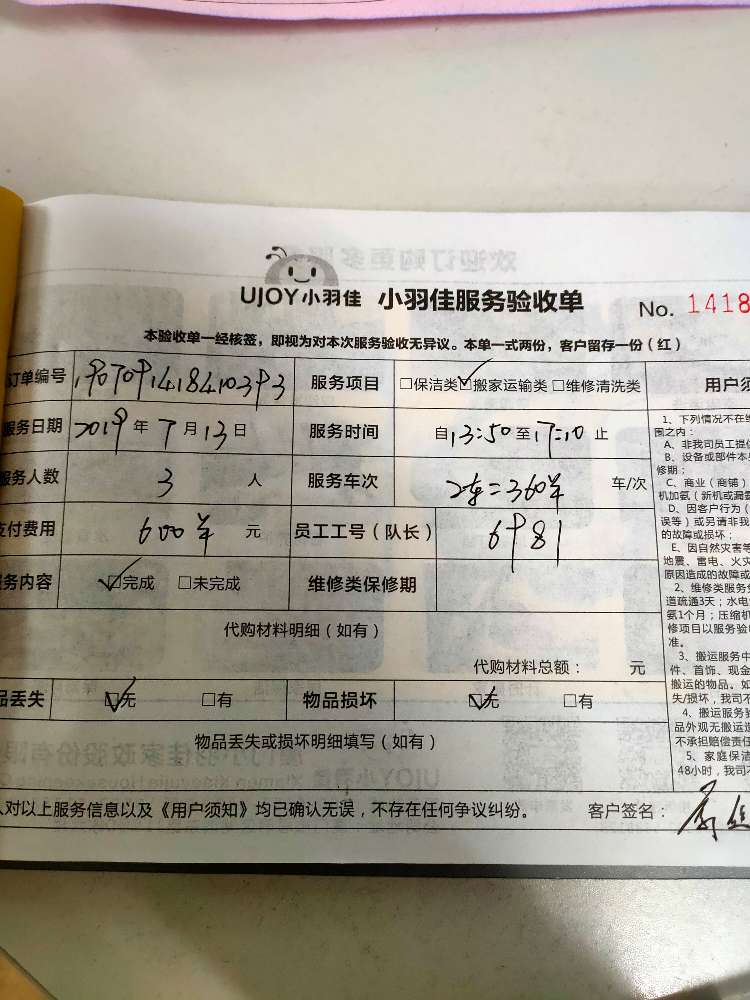 UJOY小羽佳 小羽佳服务验收单 No. 1418
本验收单一经核签，即视为对本次服务验收无异议。本单一式两份，客户留存一份（红）
订单编号 服务项目 □保洁类 ☑搬家运输类 □维修清洗类 用户须
服务日期 2019年7月13日 服务时间 自13:50至17:10止
服务人数 3 人 服务车次 2车=360羊 车/次
支付费用 600羊 元 员工工号（队长） 6981
服务内容 ☑完成 □未完成 维修类保修期
代购材料明细（如有）
代购材料总额： 元
品丢失 ☑无 □有 物品损坏 ☑无 □有
物品丢失或损坏明细填写（如有）
人对以上服务信息以及《用户须知》均已确认无误，不存在任何争议纠纷。 客户签名：
1、下列情况不在维
围之内：
A、非我司员工提供
B、设备或部件本身
修期；
C、商业（商铺）
机加氨（新机或漏氨
D、因客户行为（
误等）或另请非我
的故障或损坏；
E、因自然灾害等
地震、雷电、火灾
原因造成的故障或
2、维修类服务免
道疏通3天；水电
氨1个月；压缩机
修项目以服务验收
准。
3、搬运服务中
件、首饰、现金
搬运的物品。如
失/损坏，我司不
4、搬运服务验
品外观无搬运造
不承担赔偿责任
5、家庭保洁
48小时，我司不